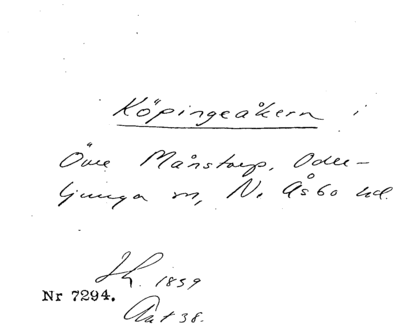 Köpingeåkern i
Övre Månstorp, Oder-
ljunga sn, N. Åsbo hd.
Jh. 1859
Nr 7294.
Ant 38.